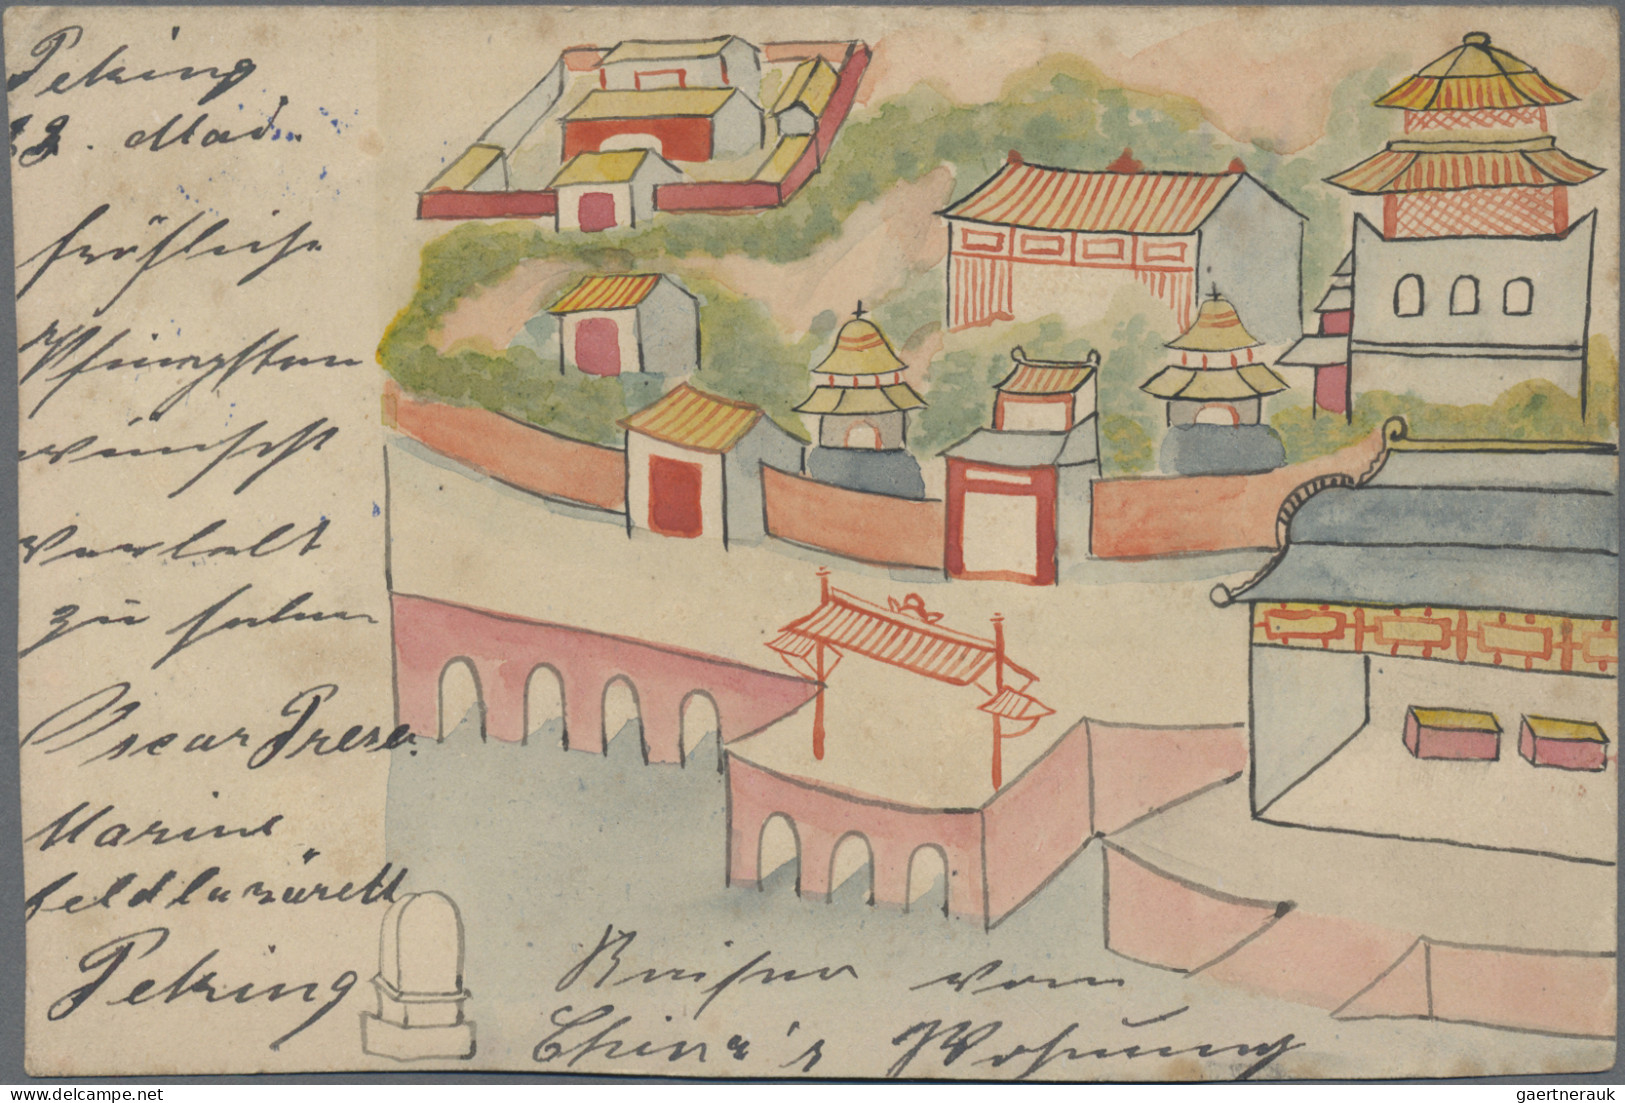 Peking
fröhliche
Pfingsten
wünscht
verlebt
zu haben
Oscar
Marine
feldlazarett
Peking
Kaiser von
China's Wohnung
gaertnerauk